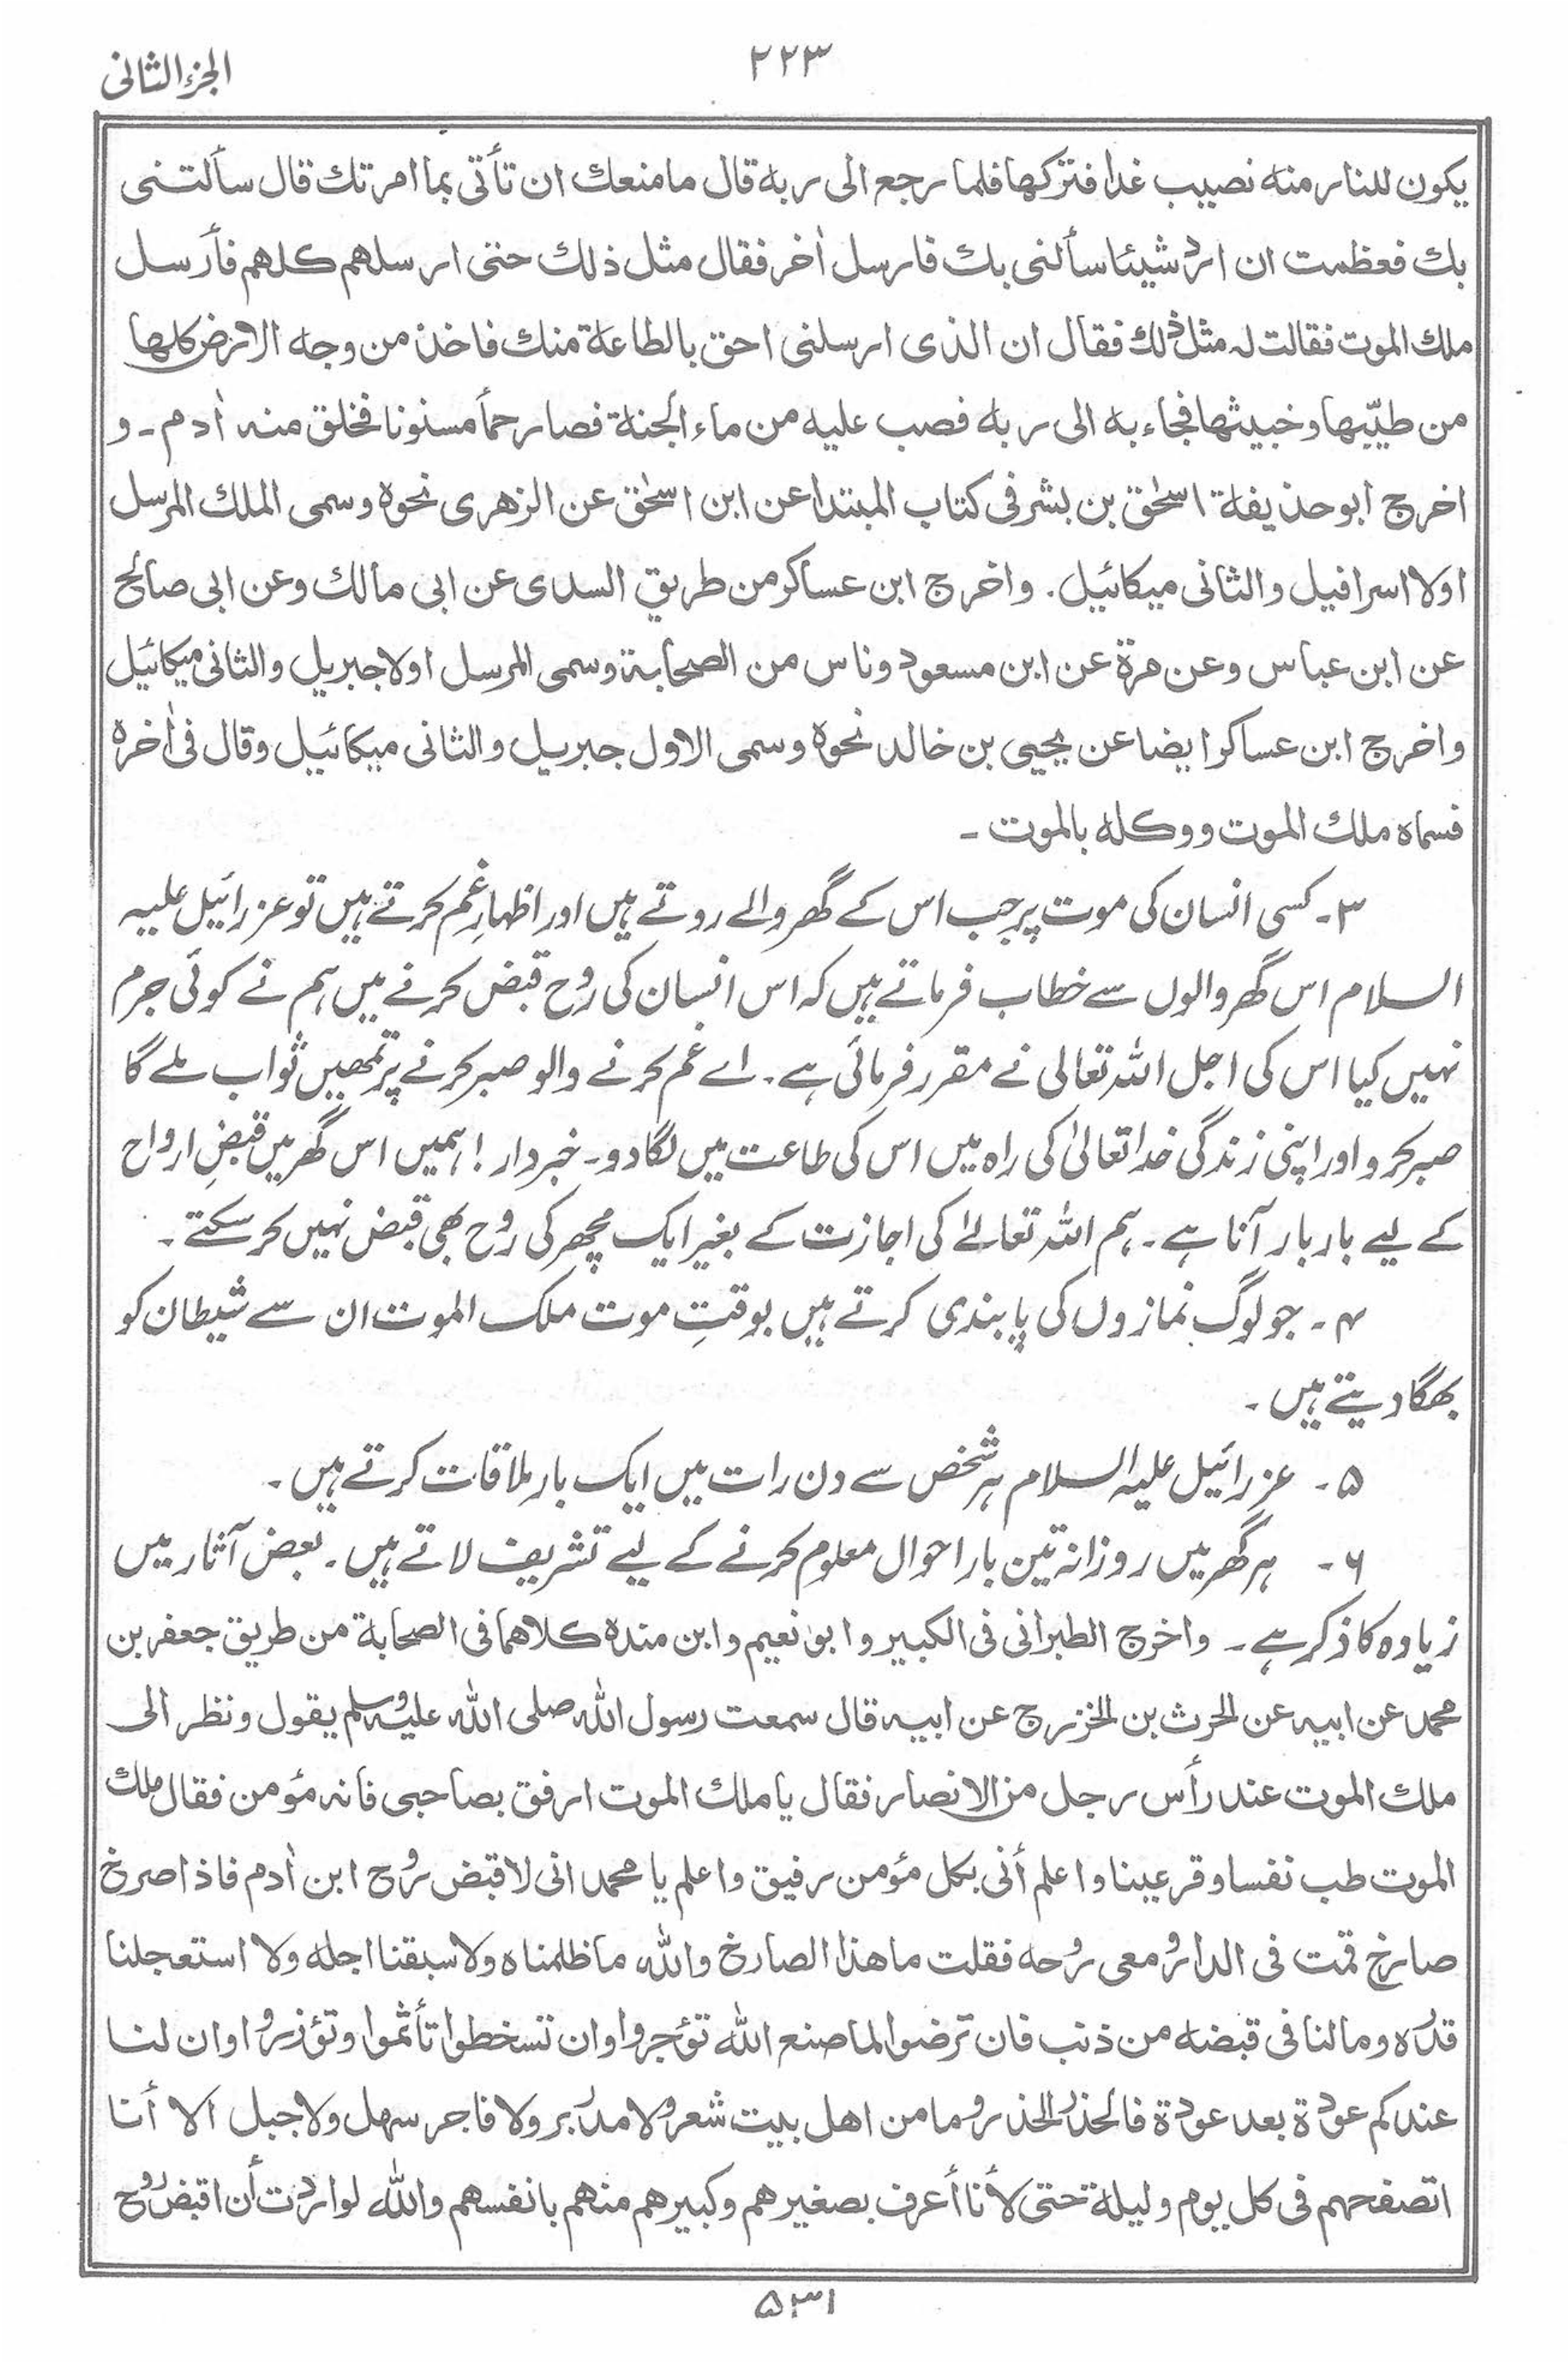 ۲۲۳
الجزء الثانی
یکون للنار منه نصیب غدا فترکها فلما رجع الی ربه قال ما منعك ان تأتی بما امرتك قال سألتنی
بك فعظمت ان ارد شیئا سألنی بك فارسل اٰخر فقال مثل ذلك حتی ارسلهم کلهم فأرسل
ملك الموت فقالت له مثل ذلك فقال ان الذی ارسلنی احق بالطاعة منك فاخذ من وجه الارض کلها
من طیّبها وخبیثها فجاء به الی ربه فصب علیه من ماء الجنة فصار حمأ مسنونا فخلق منه اٰدم ۔ و
اخرج ابو حذیفة اسحٰق بن بشر فی کتاب المبتدا عن ابن اسحٰق عن الزهری نحوه وسمی الملك المرسل
اولا اسرافیل والثانی میکائیل ۔ واخرج ابن عساکر من طریق السدی عن ابی مالك وعن ابی صالح
عن ابن عباس وعن مرة عن ابن مسعود وناس من الصحابة وسمی المرسل اولا جبریل والثانی میکائیل
واخرج ابن عساکر ایضا عن یحیی بن خالد نحوه وسمی الاول جبریل والثانی میکائیل وقال فی اٰخره
فسماه ملك الموت ووکله بالموت ۔
۳۔ کسی انسان کی موت پر جب اس کے گھر والے روتے ہیں اور اظہارِ غم کرتے ہیں تو عزرائیل علیہ
السلام اس گھر والوں سے خطاب فرماتے ہیں کہ اس انسان کی روح قبض کرنے میں ہم نے کوئی جرم
نہیں کیا اس کی اجل اللہ تعالی نے مقرر فرمائی ہے ۔ اے غم کرنے والو صبر کرنے پر تمھیں ثواب ملے گا
صبر کرو اور اپنی زندگی خدا تعالیٰ کی راہ میں اس کی طاعت میں لگا دو ۔ خبردار ! ہمیں اس گھر میں قبضِ ارواح
کے لیے بار بار آنا ہے ۔ ہم اللہ تعالےٰ کی اجازت کے بغیر ایک مچھر کی روح بھی قبض نہیں کر سکتے ۔
۴ ۔ جو لوگ نمازوں کی پابندی کرتے ہیں بوقتِ موت ملک الموت ان سے شیطان کو
بھگا دیتے ہیں ۔
۵ ۔ عزرائیل علیہ السلام ہر شخص سے دن رات میں ایک بار ملاقات کرتے ہیں ۔
۶ ۔ ہر گھر میں روزانہ تین بار احوال معلوم کرنے کے لیے تشریف لاتے ہیں ۔ بعض آثار میں
زیادہ کا ذکر ہے ۔ واخرج الطبرانی فی الکبیر وابو نعیم وابن منده کلاهما فی الصحابة من طریق جعفر بن
محمد عن ابیه عن الحرث بن الخزرج عن ابیه قال سمعت رسول الله صلی الله علیه وسلم یقول ونظر الی
ملك الموت عند رأس رجل من الانصار فقال یا ملك الموت ارفق بصاحبی فانه مؤمن فقال ملك
الموت طب نفسا وقر عینا واعلم أنی بکل مؤمن رفیق واعلم یا محمد انی لاقبض روح ابن اٰدم فاذا صرخ
صارخ قمت فی الدار ومعی روحه فقلت ما هذا الصارخ والله ما ظلمناه ولا سبقنا اجله ولا استعجلنا
قدره وما لنا فی قبضه من ذنب فان ترضوا لما صنع الله تؤجروا وان تسخطوا تأثموا وتؤذروا وان لنا
عندکم عودة بعد عودة فالحذر الحذر وما من اهل بیت شعر ولا مدر بر ولا فاجر سهل ولا جبل الا أنا
اتصفحهم فی کل یوم ولیلة حتی لأنا أعرف بصغیرهم وکبیرهم منهم بانفسهم والله لو اردت أن اقبض روح
۵۳۱